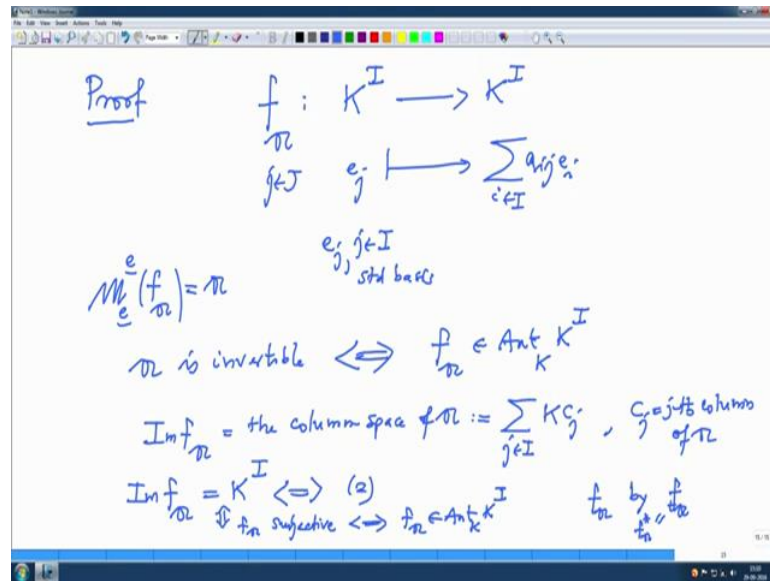 Note1 - Windows Journal
File Edit View Insert Actions Tools Help
Page Width
Proof f_𝔄 : K^I ⟶ K^I
j∈J e_j ⟼ ∑_{i∈I} a_{ij} e_i
e_j, j∈I
std basis
M^e_e (f_𝔄) = 𝔄
𝔄 is invertible ⟺ f_𝔄 ∈ Aut_K K^I
Im f_𝔄 = the column space of 𝔄 := ∑_{j∈I} K C_j , C_j = j-th column of 𝔄
Im f_𝔄 = K^I ⟺ (2)
⇕ f_𝔄 surjective ⟺ f_𝔄 ∈ Aut_K K^I
f_𝔄 by f_{t𝔄}
f*_𝔄 "